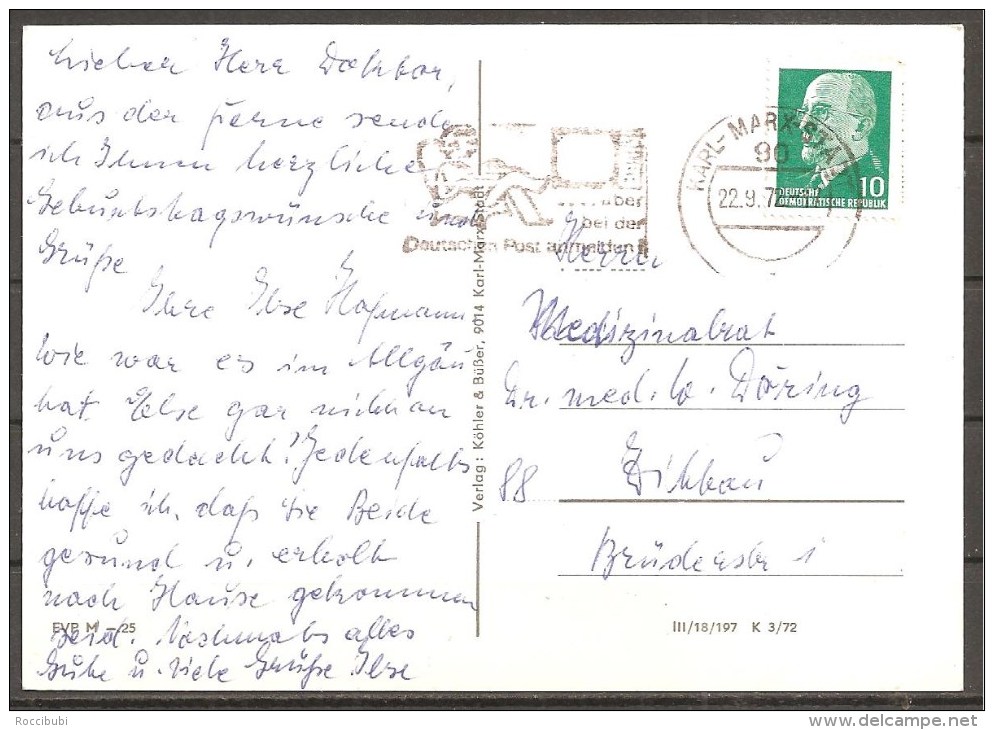 Lieber Herr Doktor,
aus der Ferne sende
ich Ihnen herzliche
Geburtstagswünsche und
Grüße
Ihre Ilse Hofmann
Wie war es im Allgäu
hat Else gar nicht an
uns gedacht? Jedenfalls
hoffe ich, daß Sie Beide
gesund u. erholt
nach Hause gekommen
seid. Nochmals alles
Gute u. viele Grüße Ilse
EVP M -,25
Verlag: Köhler & Büßer, 9014 Karl-Marx-Stadt
über
bei der
Deutschen Post anmelden
KARL-MARX-STA
90
22.9.72
10
DEUTSCHE
DEMOKRATISCHE REPUBLIK
Herrn
Medizinalrat
Dr. med. W. Döring
88 Zittau
Brüderstr 1
III/18/197 K 3/72
Roccibubi
delcampe.net